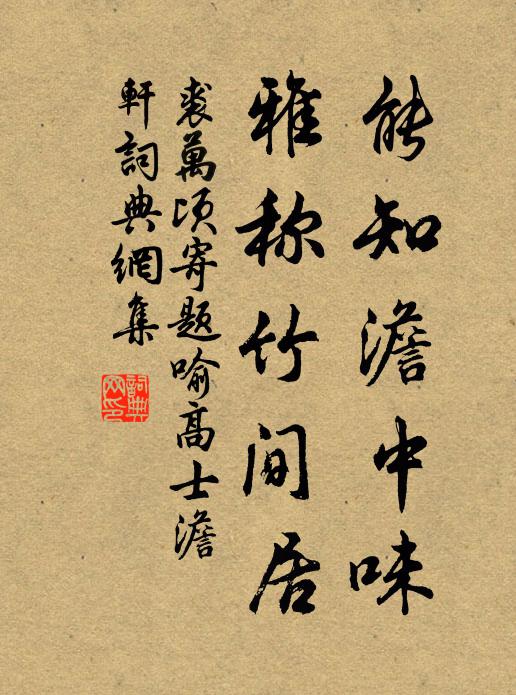 能知澹中味
雅称竹间居
裘萬頃寄题喻高士澹
軒詞典網集
詞典
网印